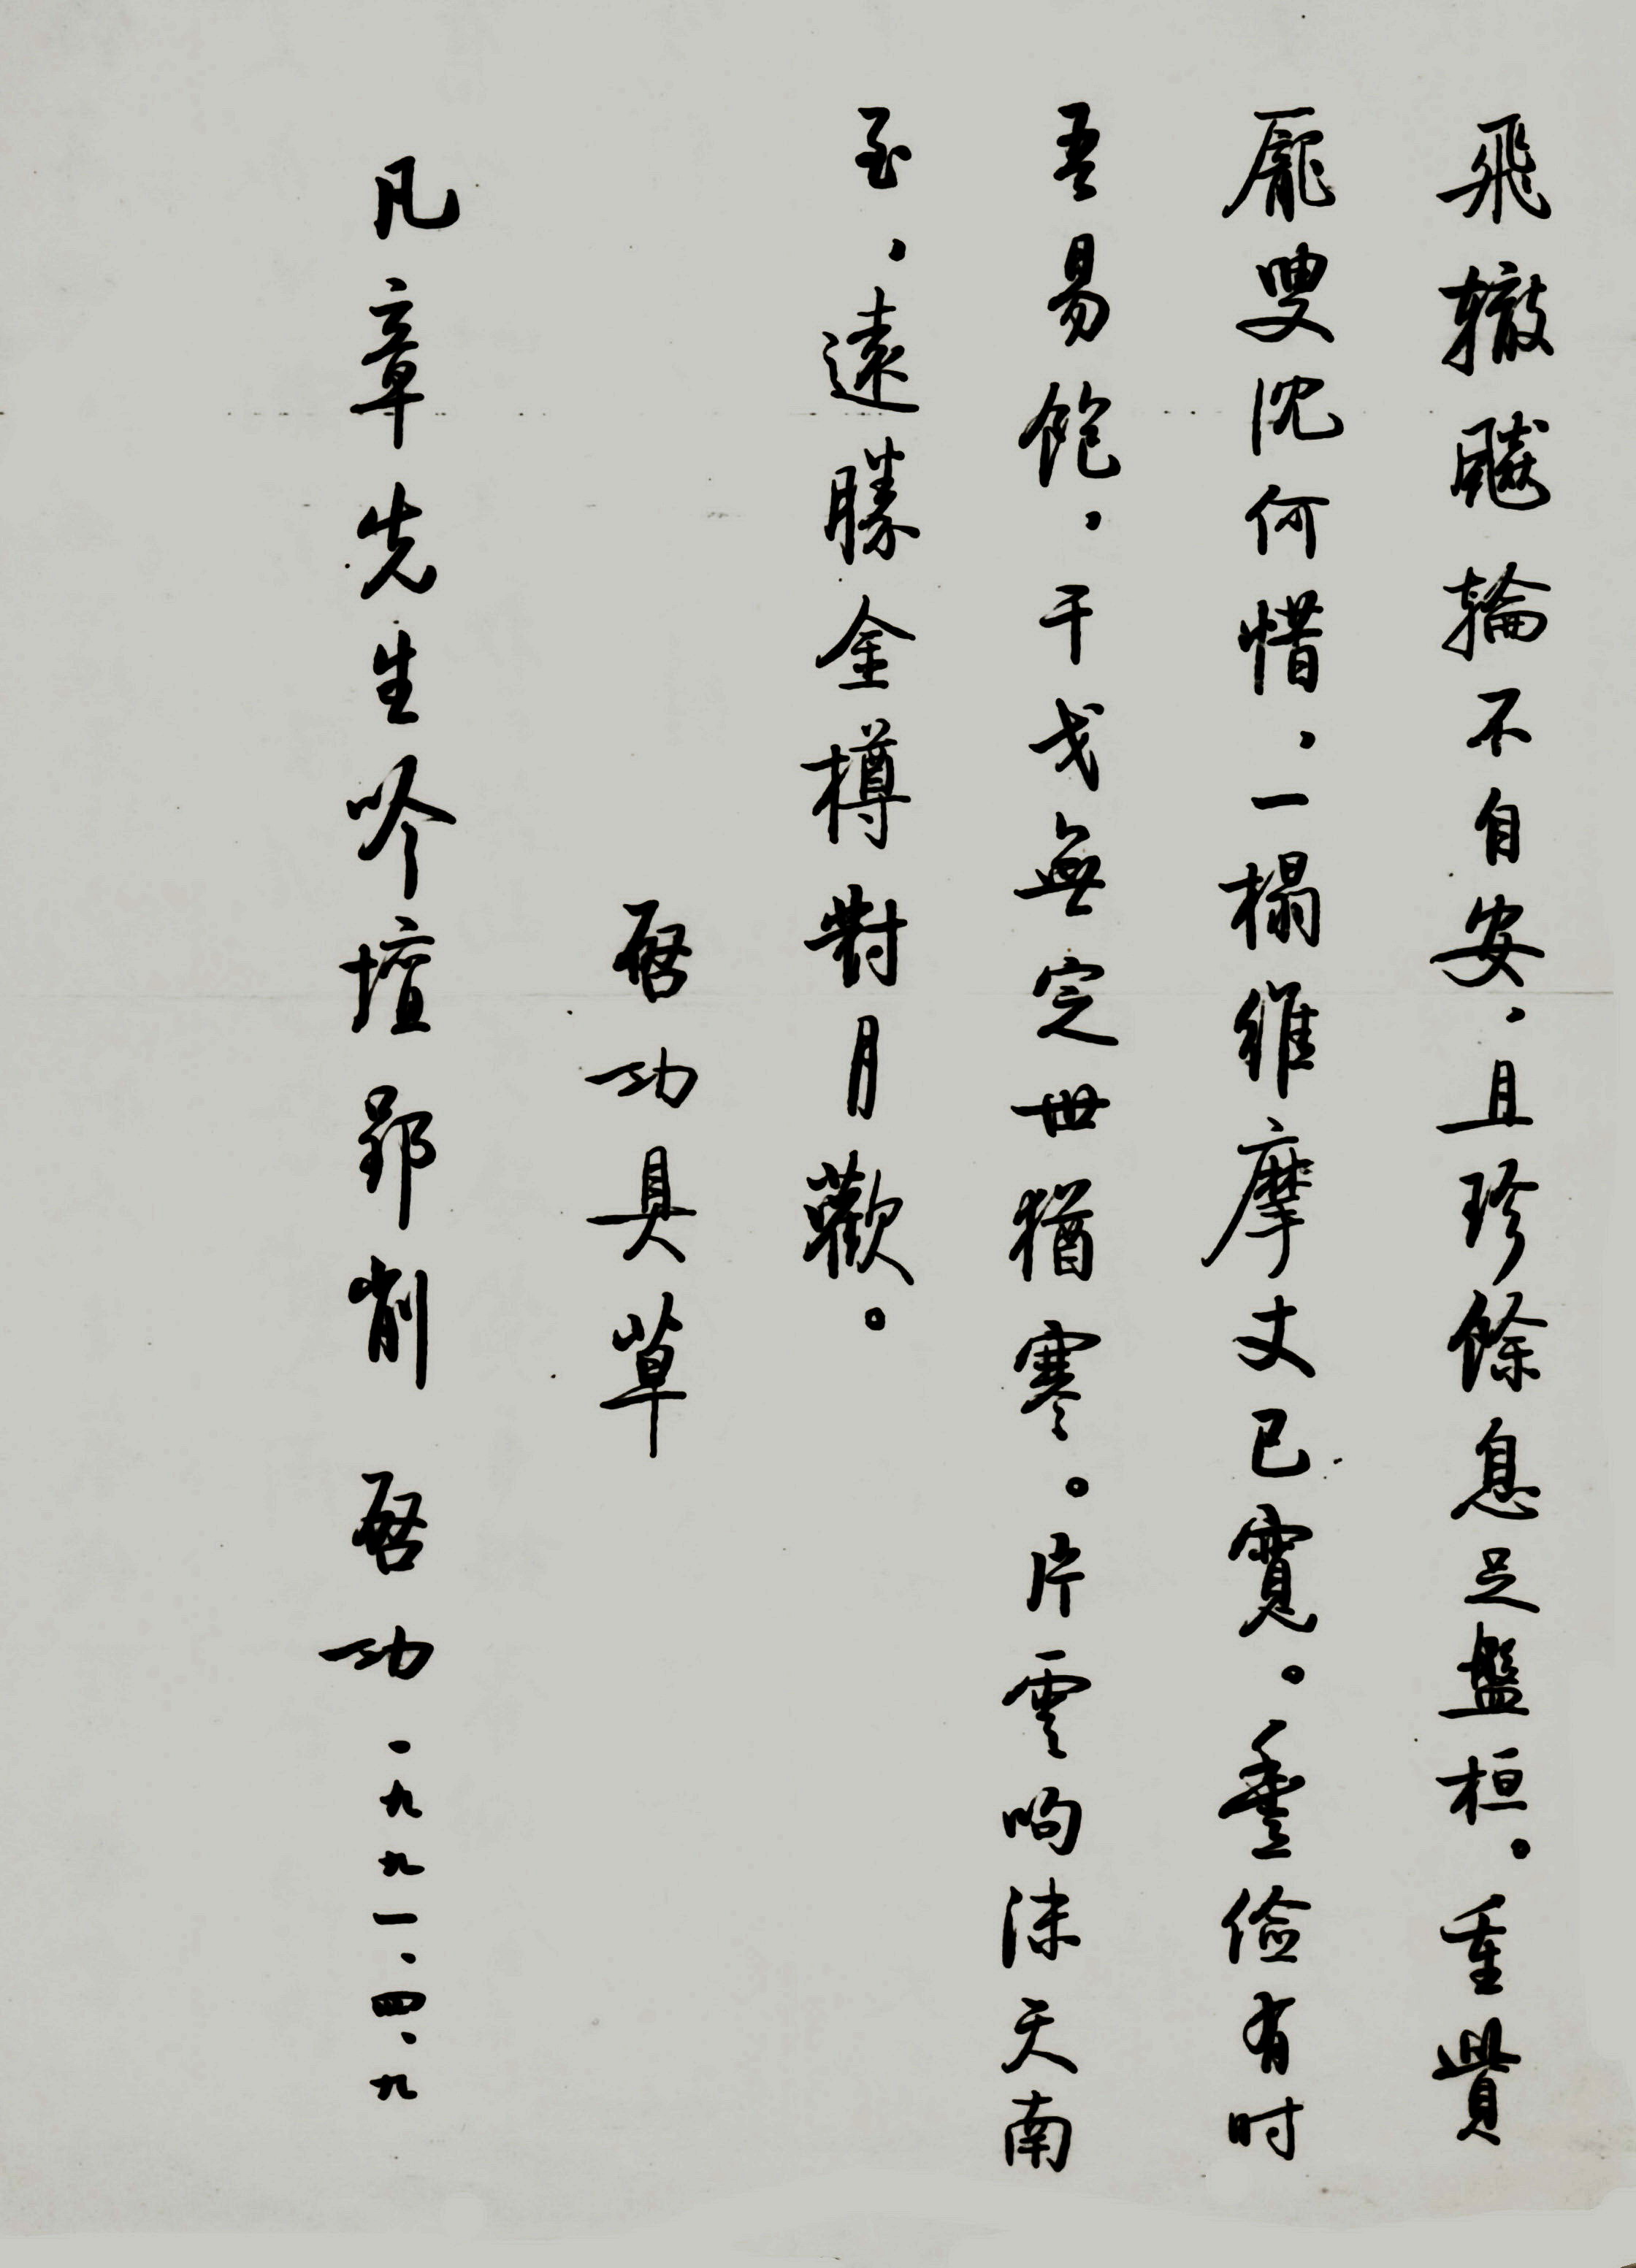 飛轍飈輪不自安，且珍餘息足盤桓。重貲
龐叟沈何惜，一榻維摩丈已寬。豐儉有时
吾易飽，干戈無定世猶寒。片雲呴沫天南
至，遠勝金樽對月歡。
啓功具草
凡章先生吟壇郢削 啓功 一九九一、四、九